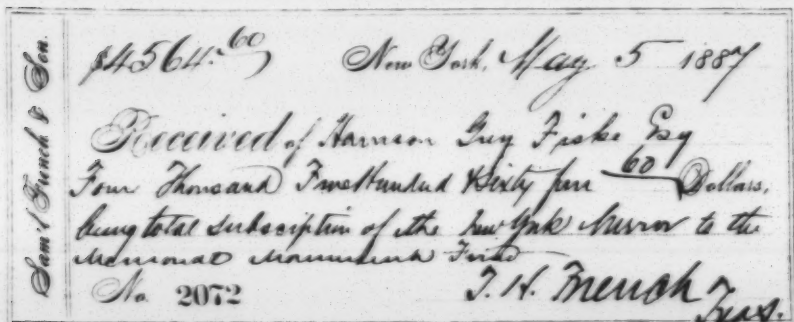 Sam'l French & Son.
$4564.60 New York, May 5 1887
Received of Harrison Grey Fiske Esq
Four Thousand Five Hundred & Sixty four 60 Dollars,
being total subscription of the New York Mirror to the
Memorial Monument Fund
No. 2072 T. H. French
Treas.